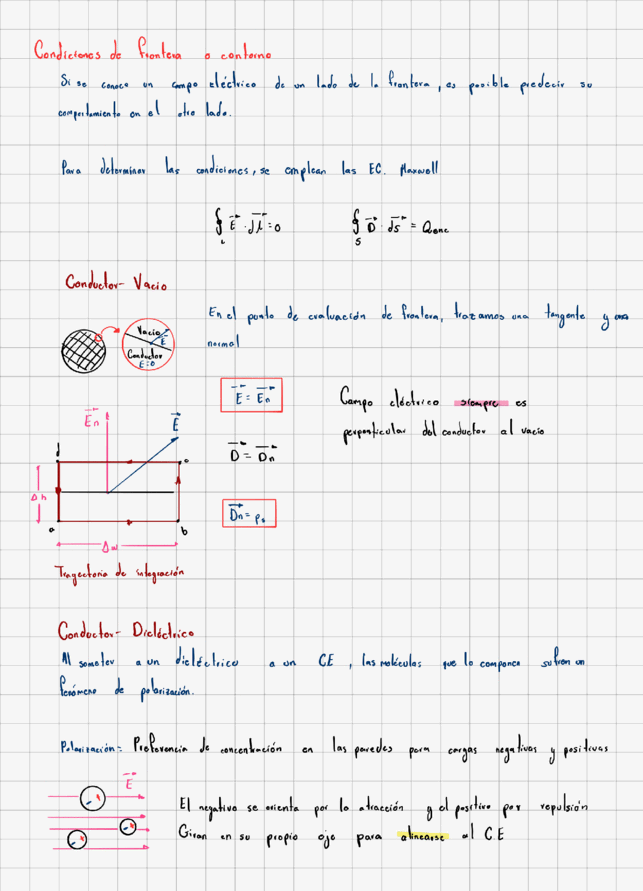 Condiciones de frontera o contorno
Si se conoce un campo eléctrico de un lado de la frontera, es posible predecir su
comportamiento en el otro lado.
Para determinar las condiciones, se emplean las EC. Maxwell
∮_L E⃗ · dl⃗ = 0
∮_S D⃗ · ds⃗ = Qenc
Conductor - Vacio
En el punto de evaluación de frontera, trazamos una tangente y una
normal
Vacio
E⃗
Conductor
E=0
E⃗ = E⃗n
Campo eléctrico siempre es
perpenticular del conductor al vacio
D⃗ = D⃗n
D⃗n = ρs
E⃗n
E⃗
d
c
Δh
a
b
Δw
Trayectoria de integración
Conductor - Dieléctrico
Al someter a un dieléctrico a un CE, las moléculas que lo componen sufren un
fenómeno de polarización.
Polarización: Preferencia de concentración en las paredes para cargas negativas y positivas
E⃗
El negativo se orienta por la atracción y el positivo por repulsión
Giran en su propio eje para alinearse al C.E